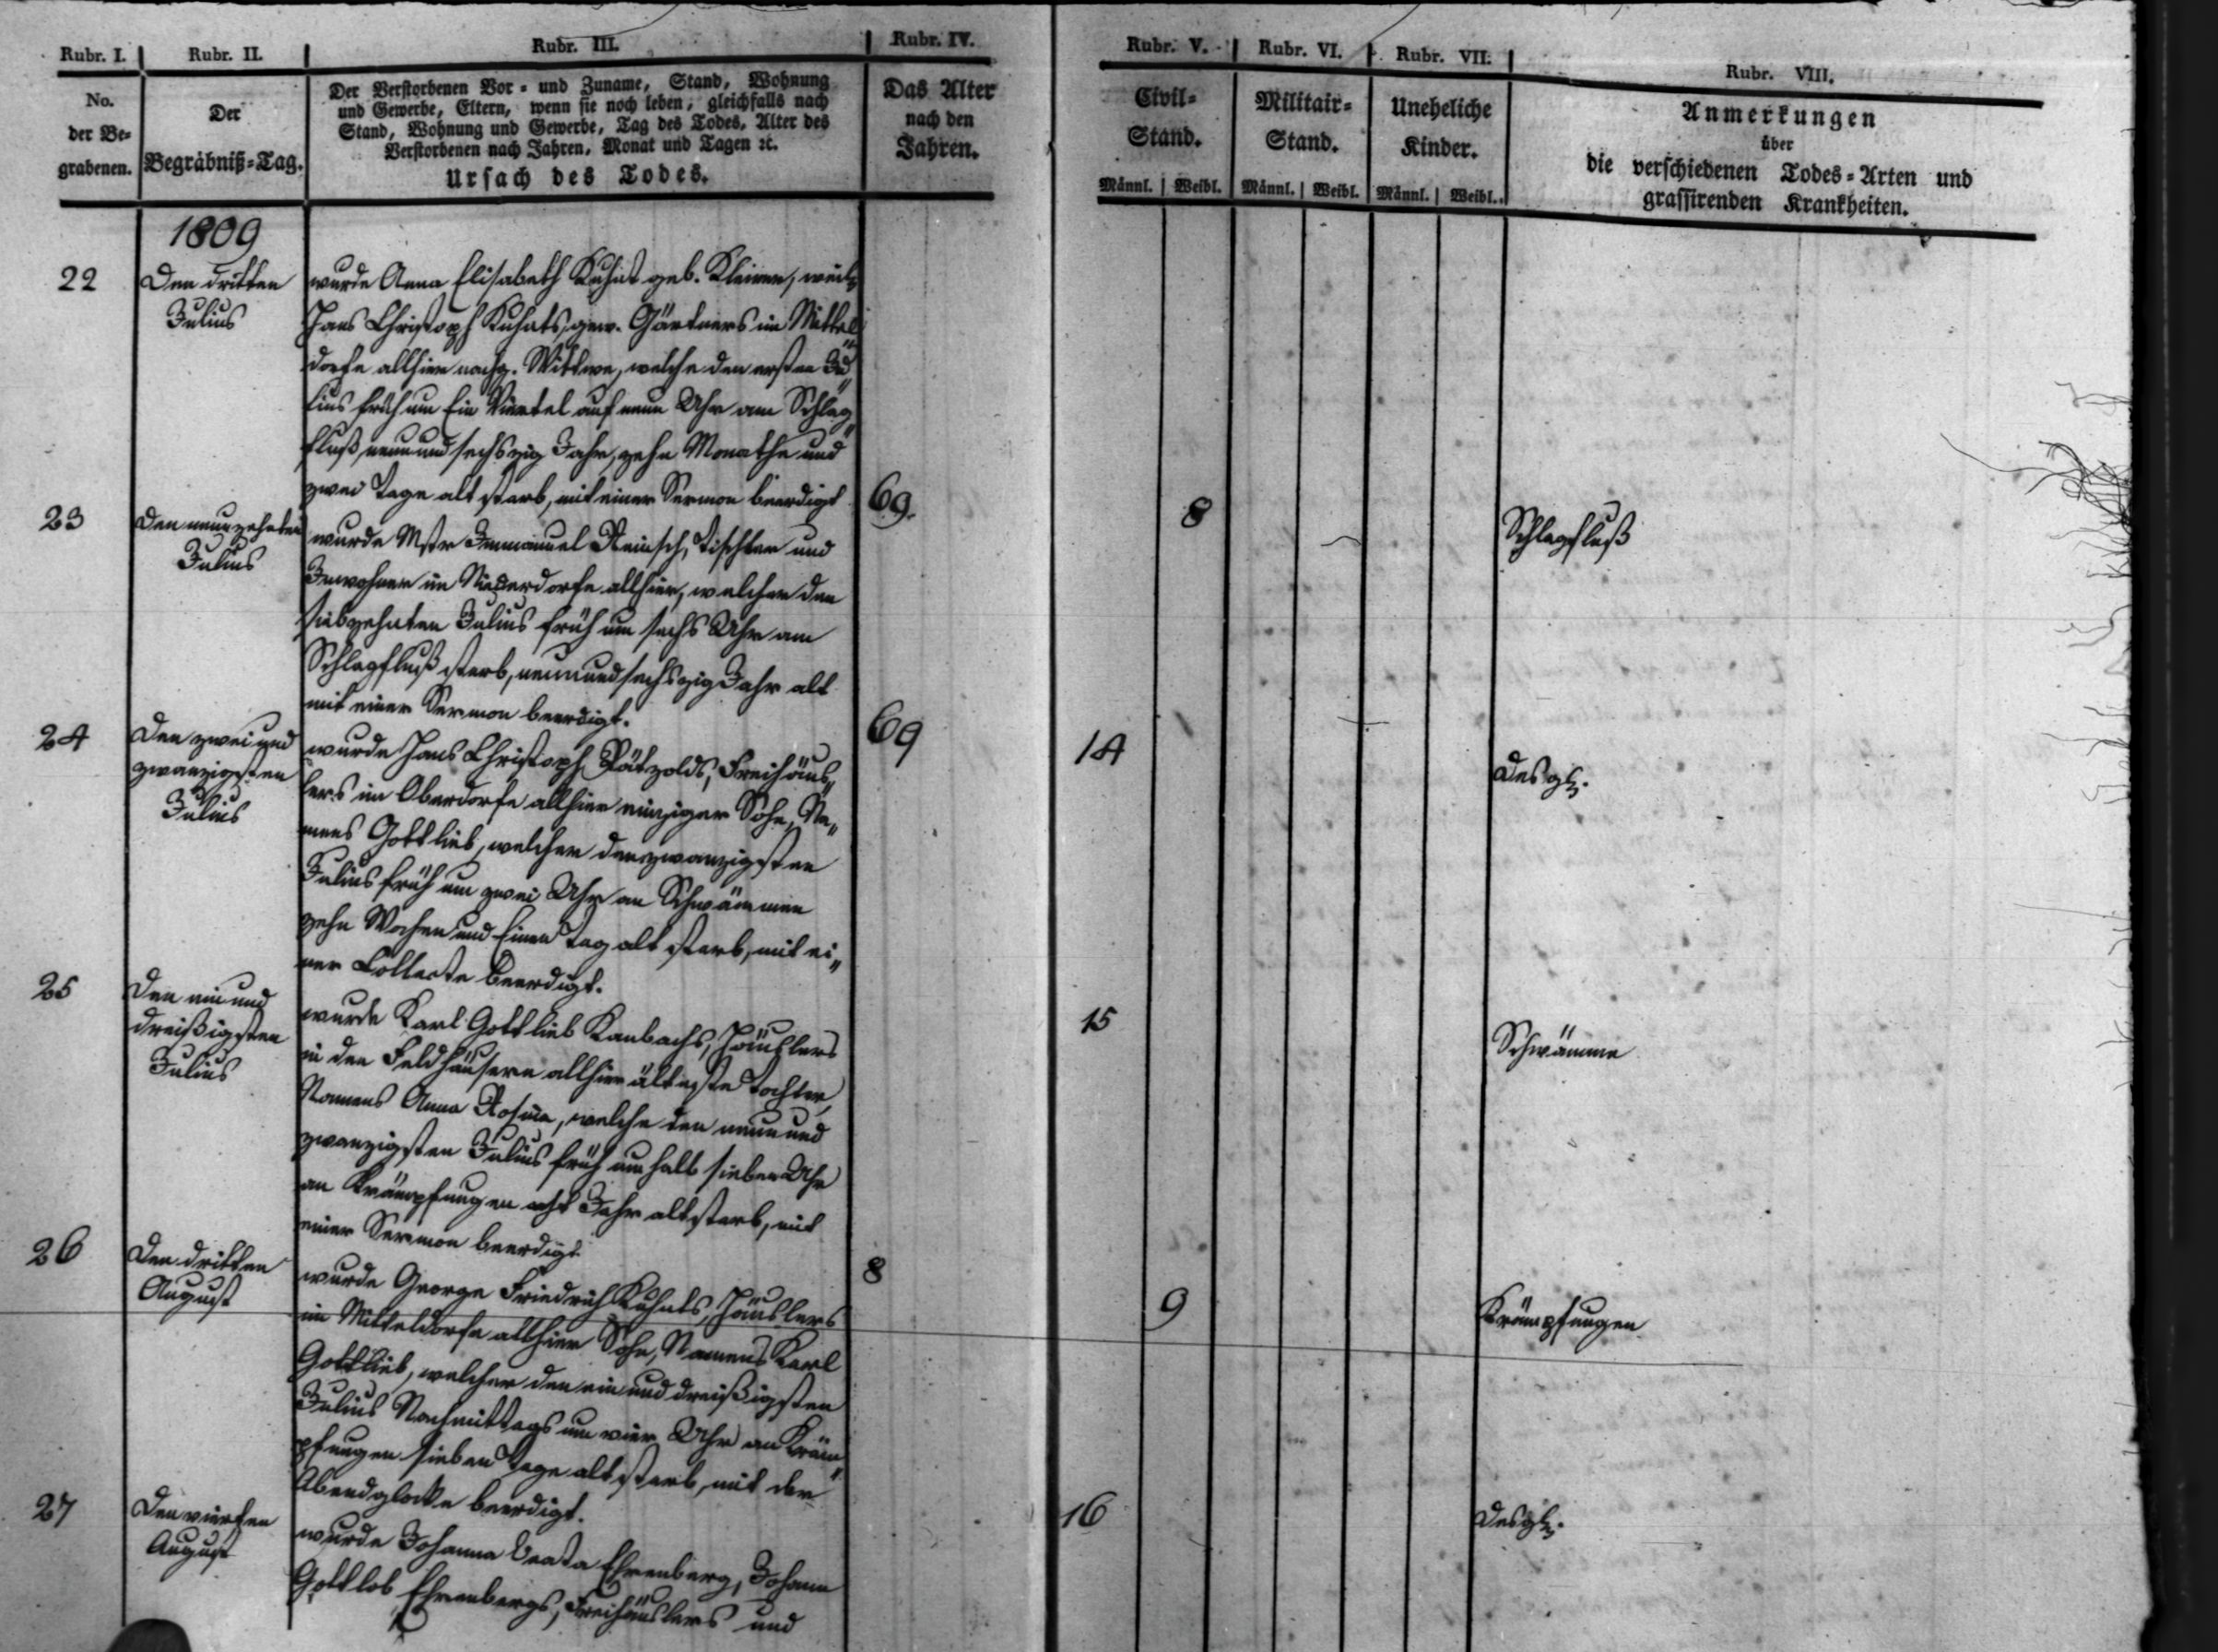 Rubr. I. Rubr. II. Rubr. III. Rubr. IV. Rubr. V. Rubr. VI. Rubr. VII. Rubr. VIII.
No.
der Be-
grabenen.
Der
Begräbniß-Tag.
Der Verstorbenen Vor- und Zuname, Stand, Wohnung
und Gewerbe, Eltern, wenn sie noch leben, gleichfalls nach
Stand, Wohnung und Gewerbe, Tag des Todes, Alter des
Verstorbenen nach Jahren, Monat und Tagen ꝛc.
Ursach des Todes.
Das Alter
nach den
Jahren.
Civil-
Stand.
Männl. Weibl.
Militair-
Stand.
Männl. Weibl.
Uneheliche
Kinder.
Männl. Weibl.
Anmerkungen
über
die verschiedenen Todes-Arten und
grassirenden Krankheiten.
1809
22
Den dritten
Julius
wurde Anna Elisabeth Kuhnt geb. Kleinen, weil.
Hans Christoph Kuhnts, gew. Gärtners im Mittel
dorfe allhier nachg. Wittwe, welche den ersten Ju
lius früh um Ein Viertel auf neun Uhr am Schlag
fluß, neunundsechszig Jahr, zehn Monathe und
zwei Tage alt starb, mit einer Sermon beerdigt
69.
8
Schlagfluß
23
Den neunzehnten
Julius
wurde Mstr Immanuel Reinsch, Tischler und
Inwohner im Niederdorfe allhier, welcher den
siebzehnten Julius früh um sechs Uhr am
Schlagfluß starb, neunundsechszig Jahr alt
mit einer Sermon beerdigt.
69
14
Desgl.
24
Den zwei und
zwanzigsten
Julius
wurde Hans Christoph Pätzolds, Freihäus„
lers im Oberdorfe allhier einziger Sohn, Na„
mens Gottlieb, welcher den zwanzigsten
Julius früh um zwei Uhr an Schwämmen
zehn Wochen und Einen Tag alt starb, mit ei„
ner Collecte beerdigt.
15
Schwämme
25
Den ein und
dreißigsten
Julius
wurde Karl Gottlieb Kanbachs, Häuslers
in den Feldhäusern allhier älteste Tochter,
Namens Anna Rosina, welche den neun und
zwanzigsten Julius früh um halb sieben Uhr
an Krämpfungen acht Jahr alt starb, mit
einer Sermon beerdigt
8
9
Krämpfungen
26
Den dritten
August
wurde George Friedrich Kuhnts, Häuslers
im Mitteldorfe allhier Sohn, Namens Karl
Gottlieb, welcher den ein und dreißigsten
Julius Nachmittags um vier Uhr an Kräm„
pfungen sieben Tage alt starb, mit der
Abendglocke beerdigt.
16
Desgl.
27
Den vierten
August
wurde Johanna Beata Ehrenberg, Johann
Gottlob Ehrenbergs, Freihäuslers und